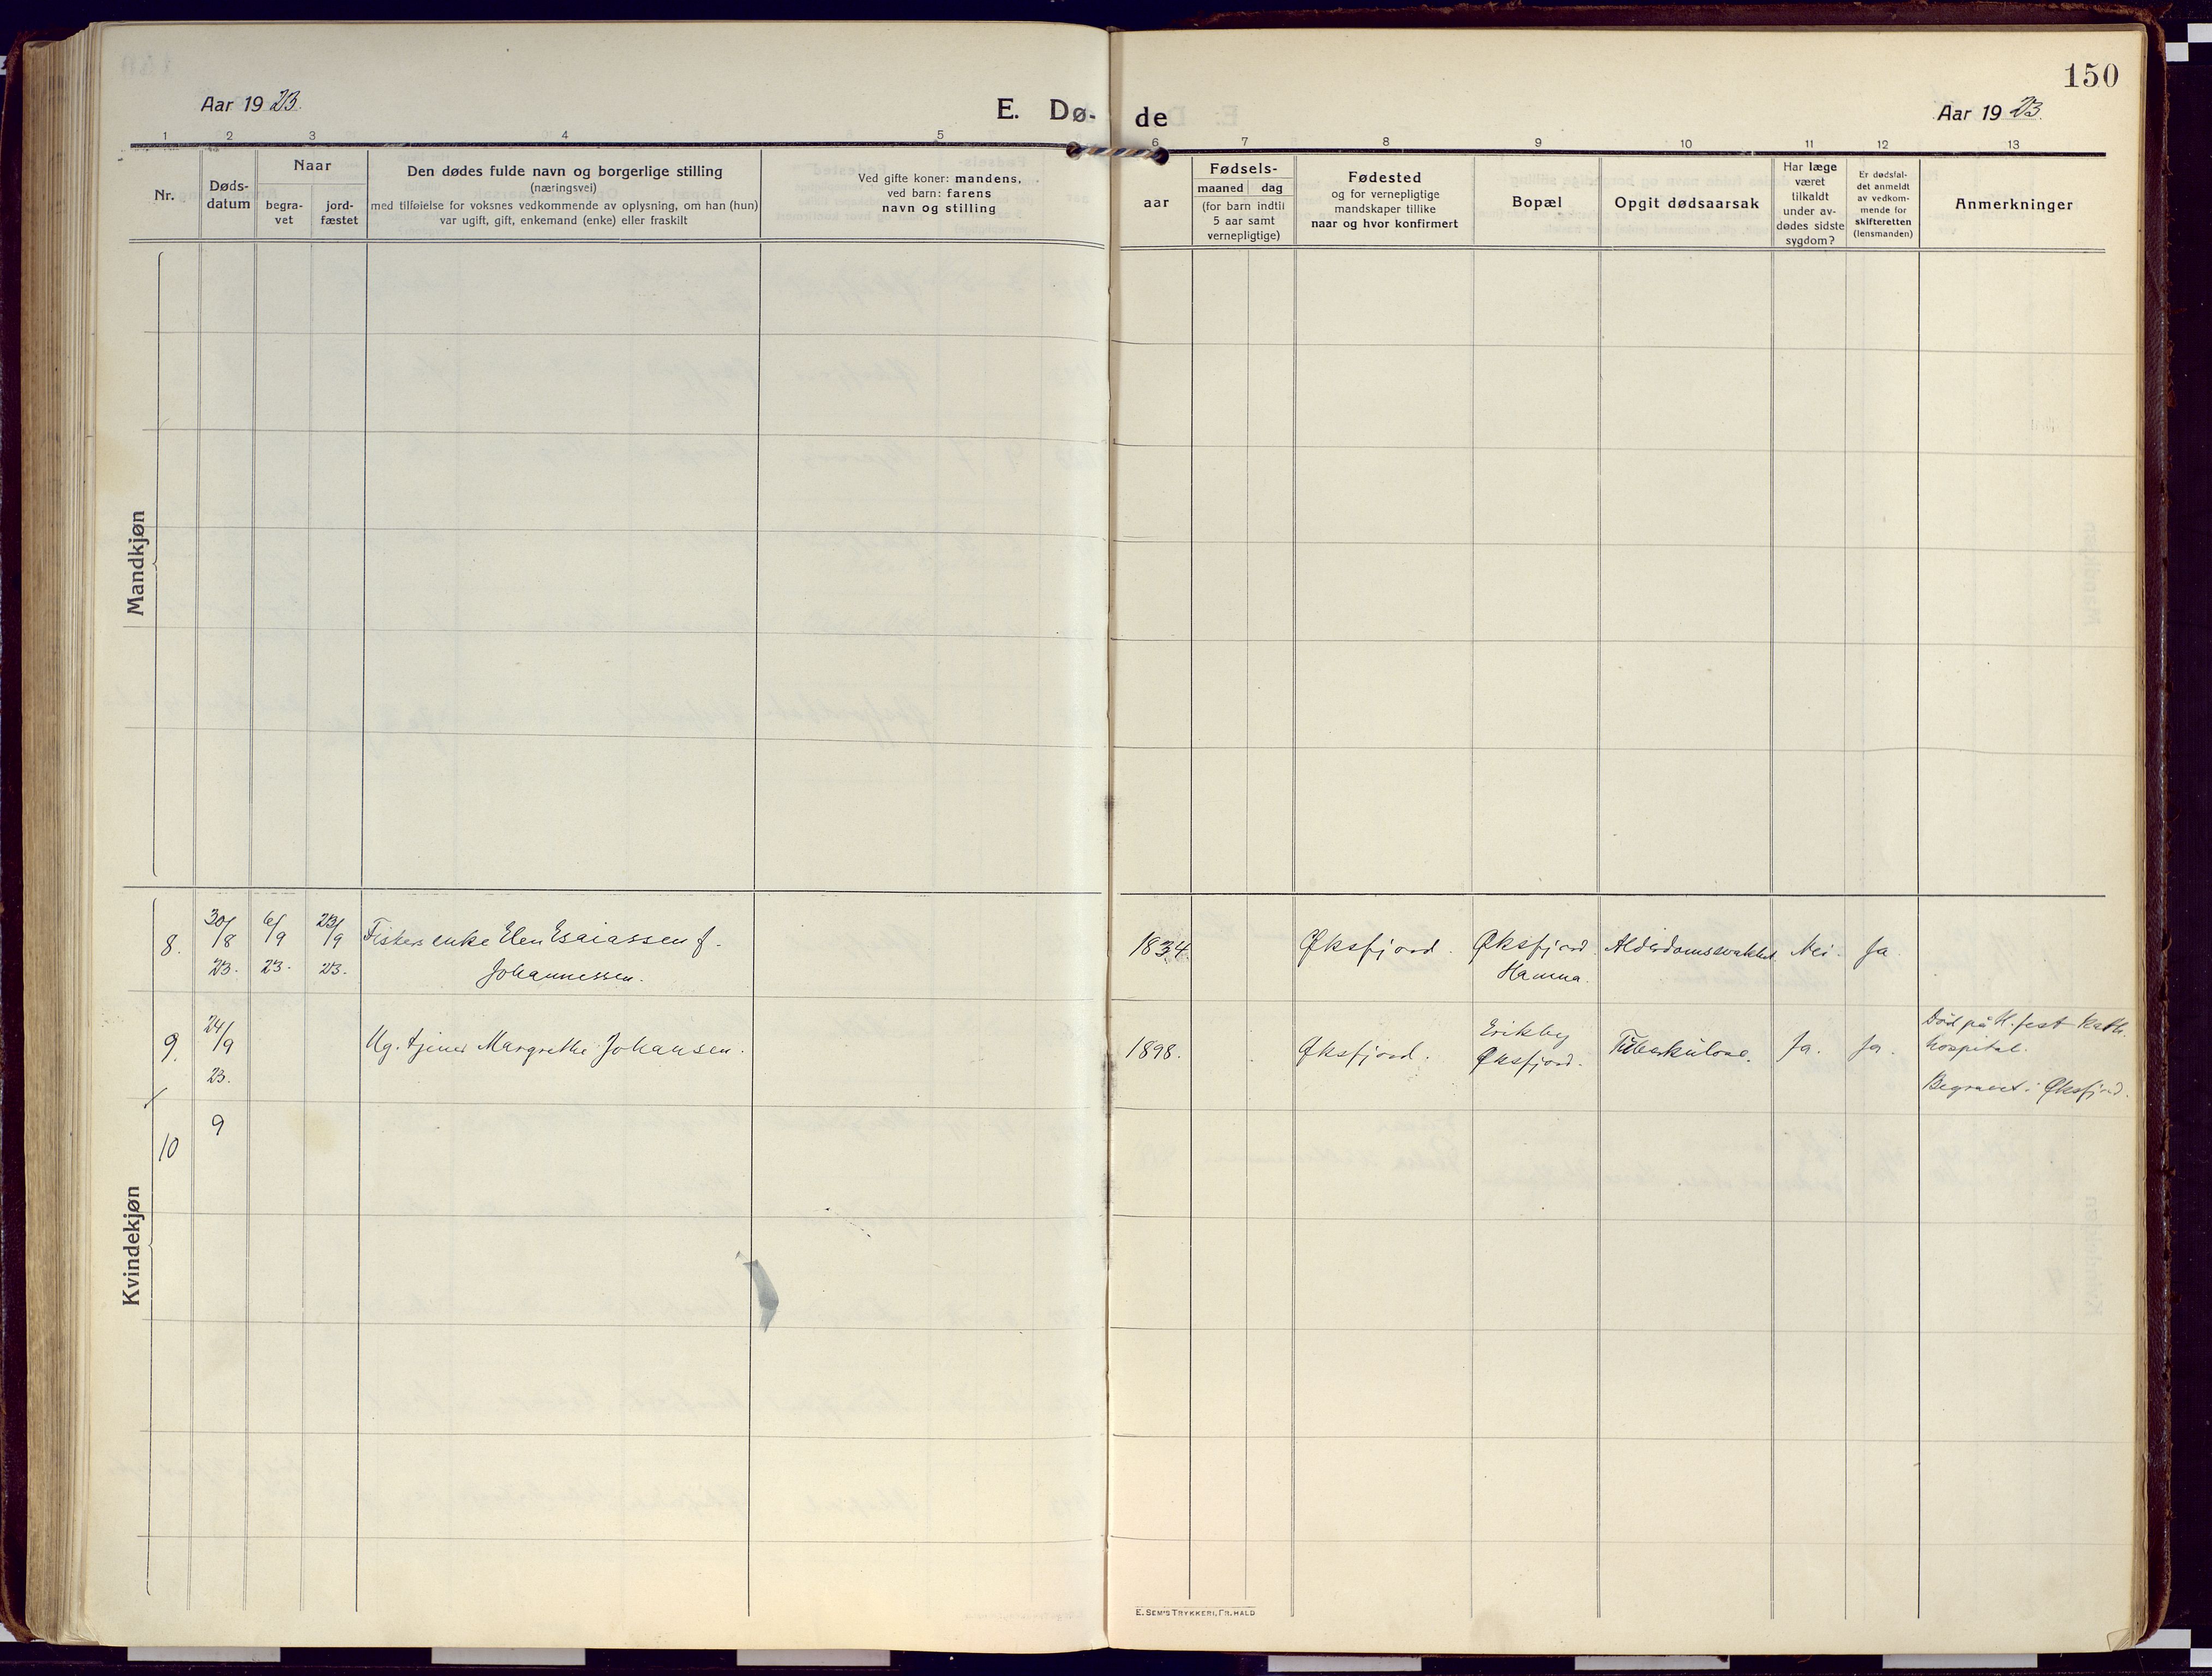 150
Aar 1923.
E. Dø-
de
Aar 1923.
1 2 3 4 5 6 7 8 9 10 11 12 13
Nr.
Døds-
datum
Naar
begra-
vet
jord-
fæstet
Den dødes fulde navn og borgerlige stilling
(næringsvei)
med tilføielse for voksnes vedkommende av oplysning, om han (hun)
var ugift, gift, enkemand (enke) eller fraskilt
Ved gifte koner: mandens,
ved barn: farens
navn og stilling
aar
Fødsels-
maaned dag
(for barn indtil
5 aar samt
vernepligtige)
Fødested
og for vernepligtige
mandskaper tillike
naar og hvor konfirmert
Bopæl
Opgit dødsaarsak
Har læge
været
tilkaldt
under av-
dødes sidste
sygdom?
Er dødsfal-
det anmeldt
av vedkom-
mende for
skifteretten
(lensmanden)
Anmerkninger
Mandkjøn
Kvindekjøn
8. 30/8 23. 6/9 23. 23/9 23. Fiskers enke Elen Esaiassen f.
Johannessen.
1834 Øksfjord. Øksfjord Alderdomssvakhet. Nei. Ja.
Hamna.
9. 24/9 23. Ug. tjener Margrethe Johansen.
1898. Øksfjord. Eriksby
Øksfjord. Tuberkulose. Ja. Ja.
Død på H.fest Kath.
hospital.
Begravet i Øksfjord.
10 9
E. SEM'S TRYKKERI, FR.HALD